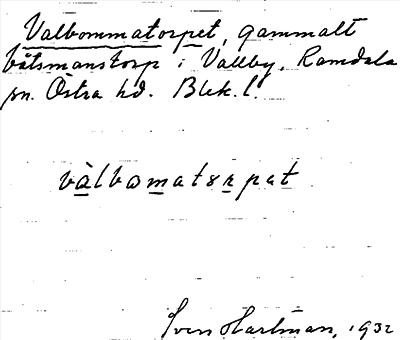 Valbommatorpet, gammalt
båtsmanstorp i Vallby, Ramdala
sn. Östra hd. Blek. l.
vàlbomatorpat
Sven Hartman, 1932